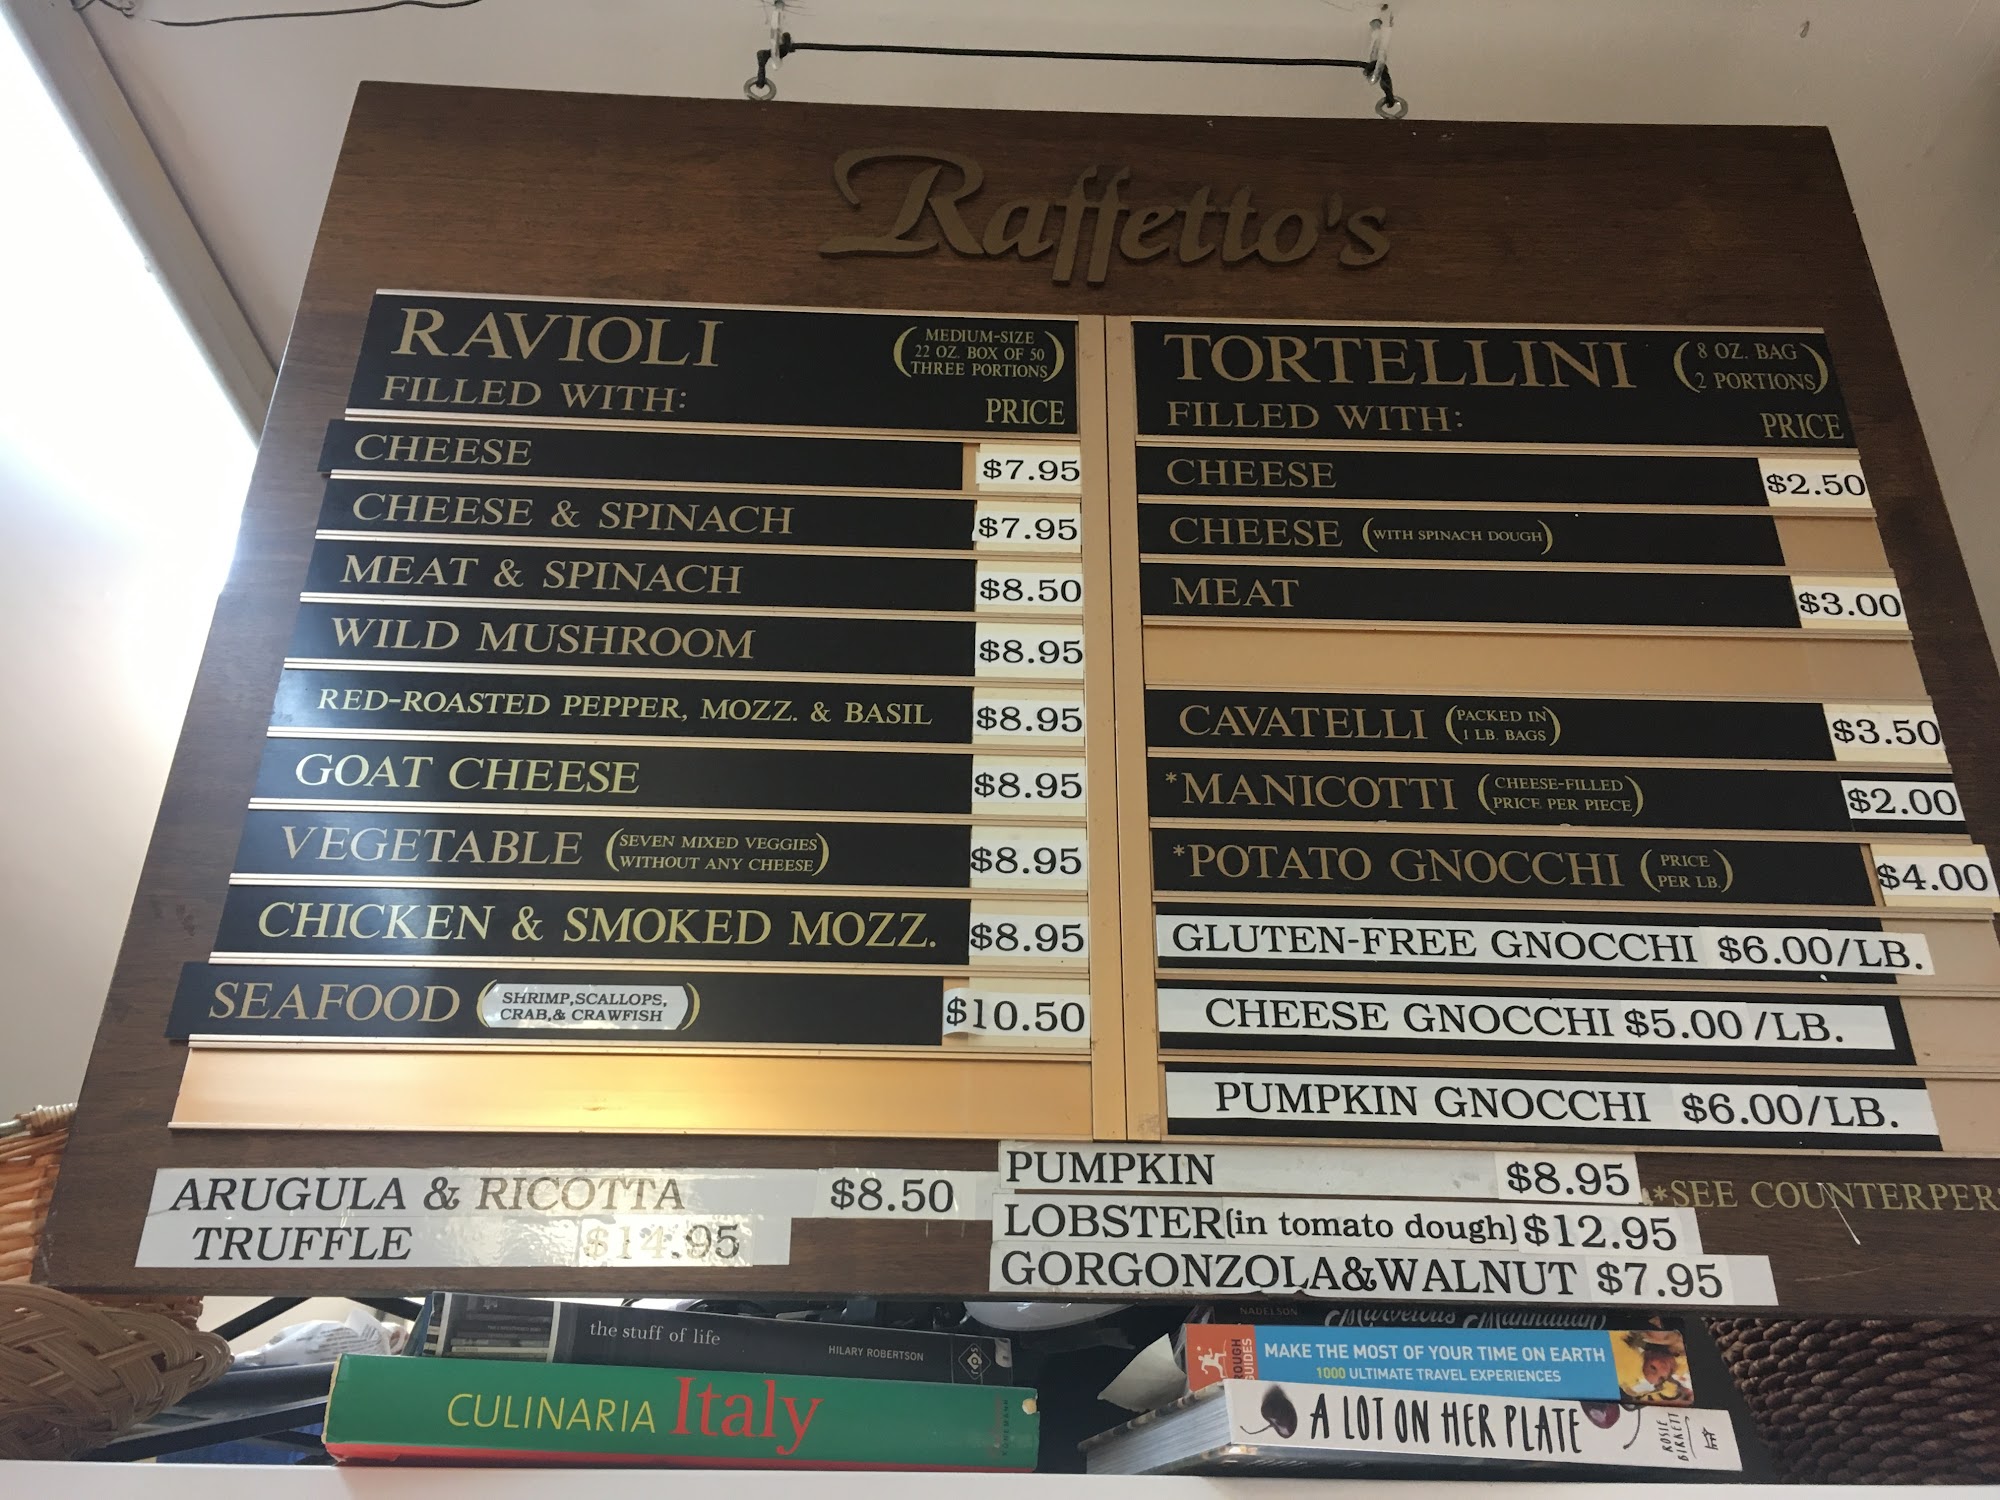 Raffetto's
RAVIOLI
(MEDIUM-SIZE
22 OZ. BOX OF 50
THREE PORTIONS)
FILLED WITH:
PRICE
CHEESE $7.95
CHEESE & SPINACH $7.95
MEAT & SPINACH $8.50
WILD MUSHROOM $8.95
RED-ROASTED PEPPER, MOZZ. & BASIL $8.95
GOAT CHEESE $8.95
VEGETABLE (SEVEN MIXED VEGGIES
WITHOUT ANY CHEESE) $8.95
CHICKEN & SMOKED MOZZ. $8.95
SEAFOOD (SHRIMP,SCALLOPS,
CRAB,& CRAWFISH) $10.50
TORTELLINI
(8 OZ. BAG
2 PORTIONS)
FILLED WITH:
PRICE
CHEESE $2.50
CHEESE (WITH SPINACH DOUGH)
MEAT $3.00
CAVATELLI (PACKED IN
1 LB. BAGS) $3.50
*MANICOTTI (CHEESE-FILLED
PRICE PER PIECE) $2.00
*POTATO GNOCCHI (PRICE
PER LB.) $4.00
GLUTEN-FREE GNOCCHI $6.00/LB.
CHEESE GNOCCHI $5.00/LB.
PUMPKIN GNOCCHI $6.00/LB.
ARUGULA & RICOTTA $8.50
TRUFFLE $14.95
PUMPKIN $8.95
LOBSTER(in tomato dough) $12.95
GORGONZOLA&WALNUT $7.95
*SEE COUNTERPER
the stuff of life HILARY ROBERTSON rps
CULINARIA Italy
NADELSON Marvelous Manhattan
ROUGH GUIDES
MAKE THE MOST OF YOUR TIME ON EARTH
1000 ULTIMATE TRAVEL EXPERIENCES
A LOT ON HER PLATE ROSIE BIRKETT